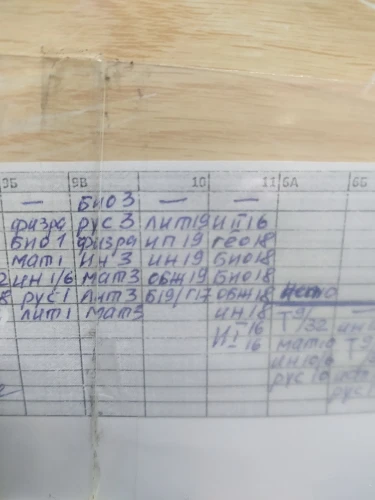 9Б 9В 10 11 6А 6Б
— БИО 3 — —
физра рус 3 лит 19 И II 16
БИО 1 физра ИП 19 гео 18
мат 1 ин 3 ин 19 БИО 18
ин 1/6 мат 3 ОБЖ 19 БИО 18
рус 1 лит 3 Б19/Г17 ОБЖ 18
лит 1 мат 3 ин 18 Т 9/32
И I 16 мат 10 Т 9
И II 16 ин 10/6
рус 10
рус 1